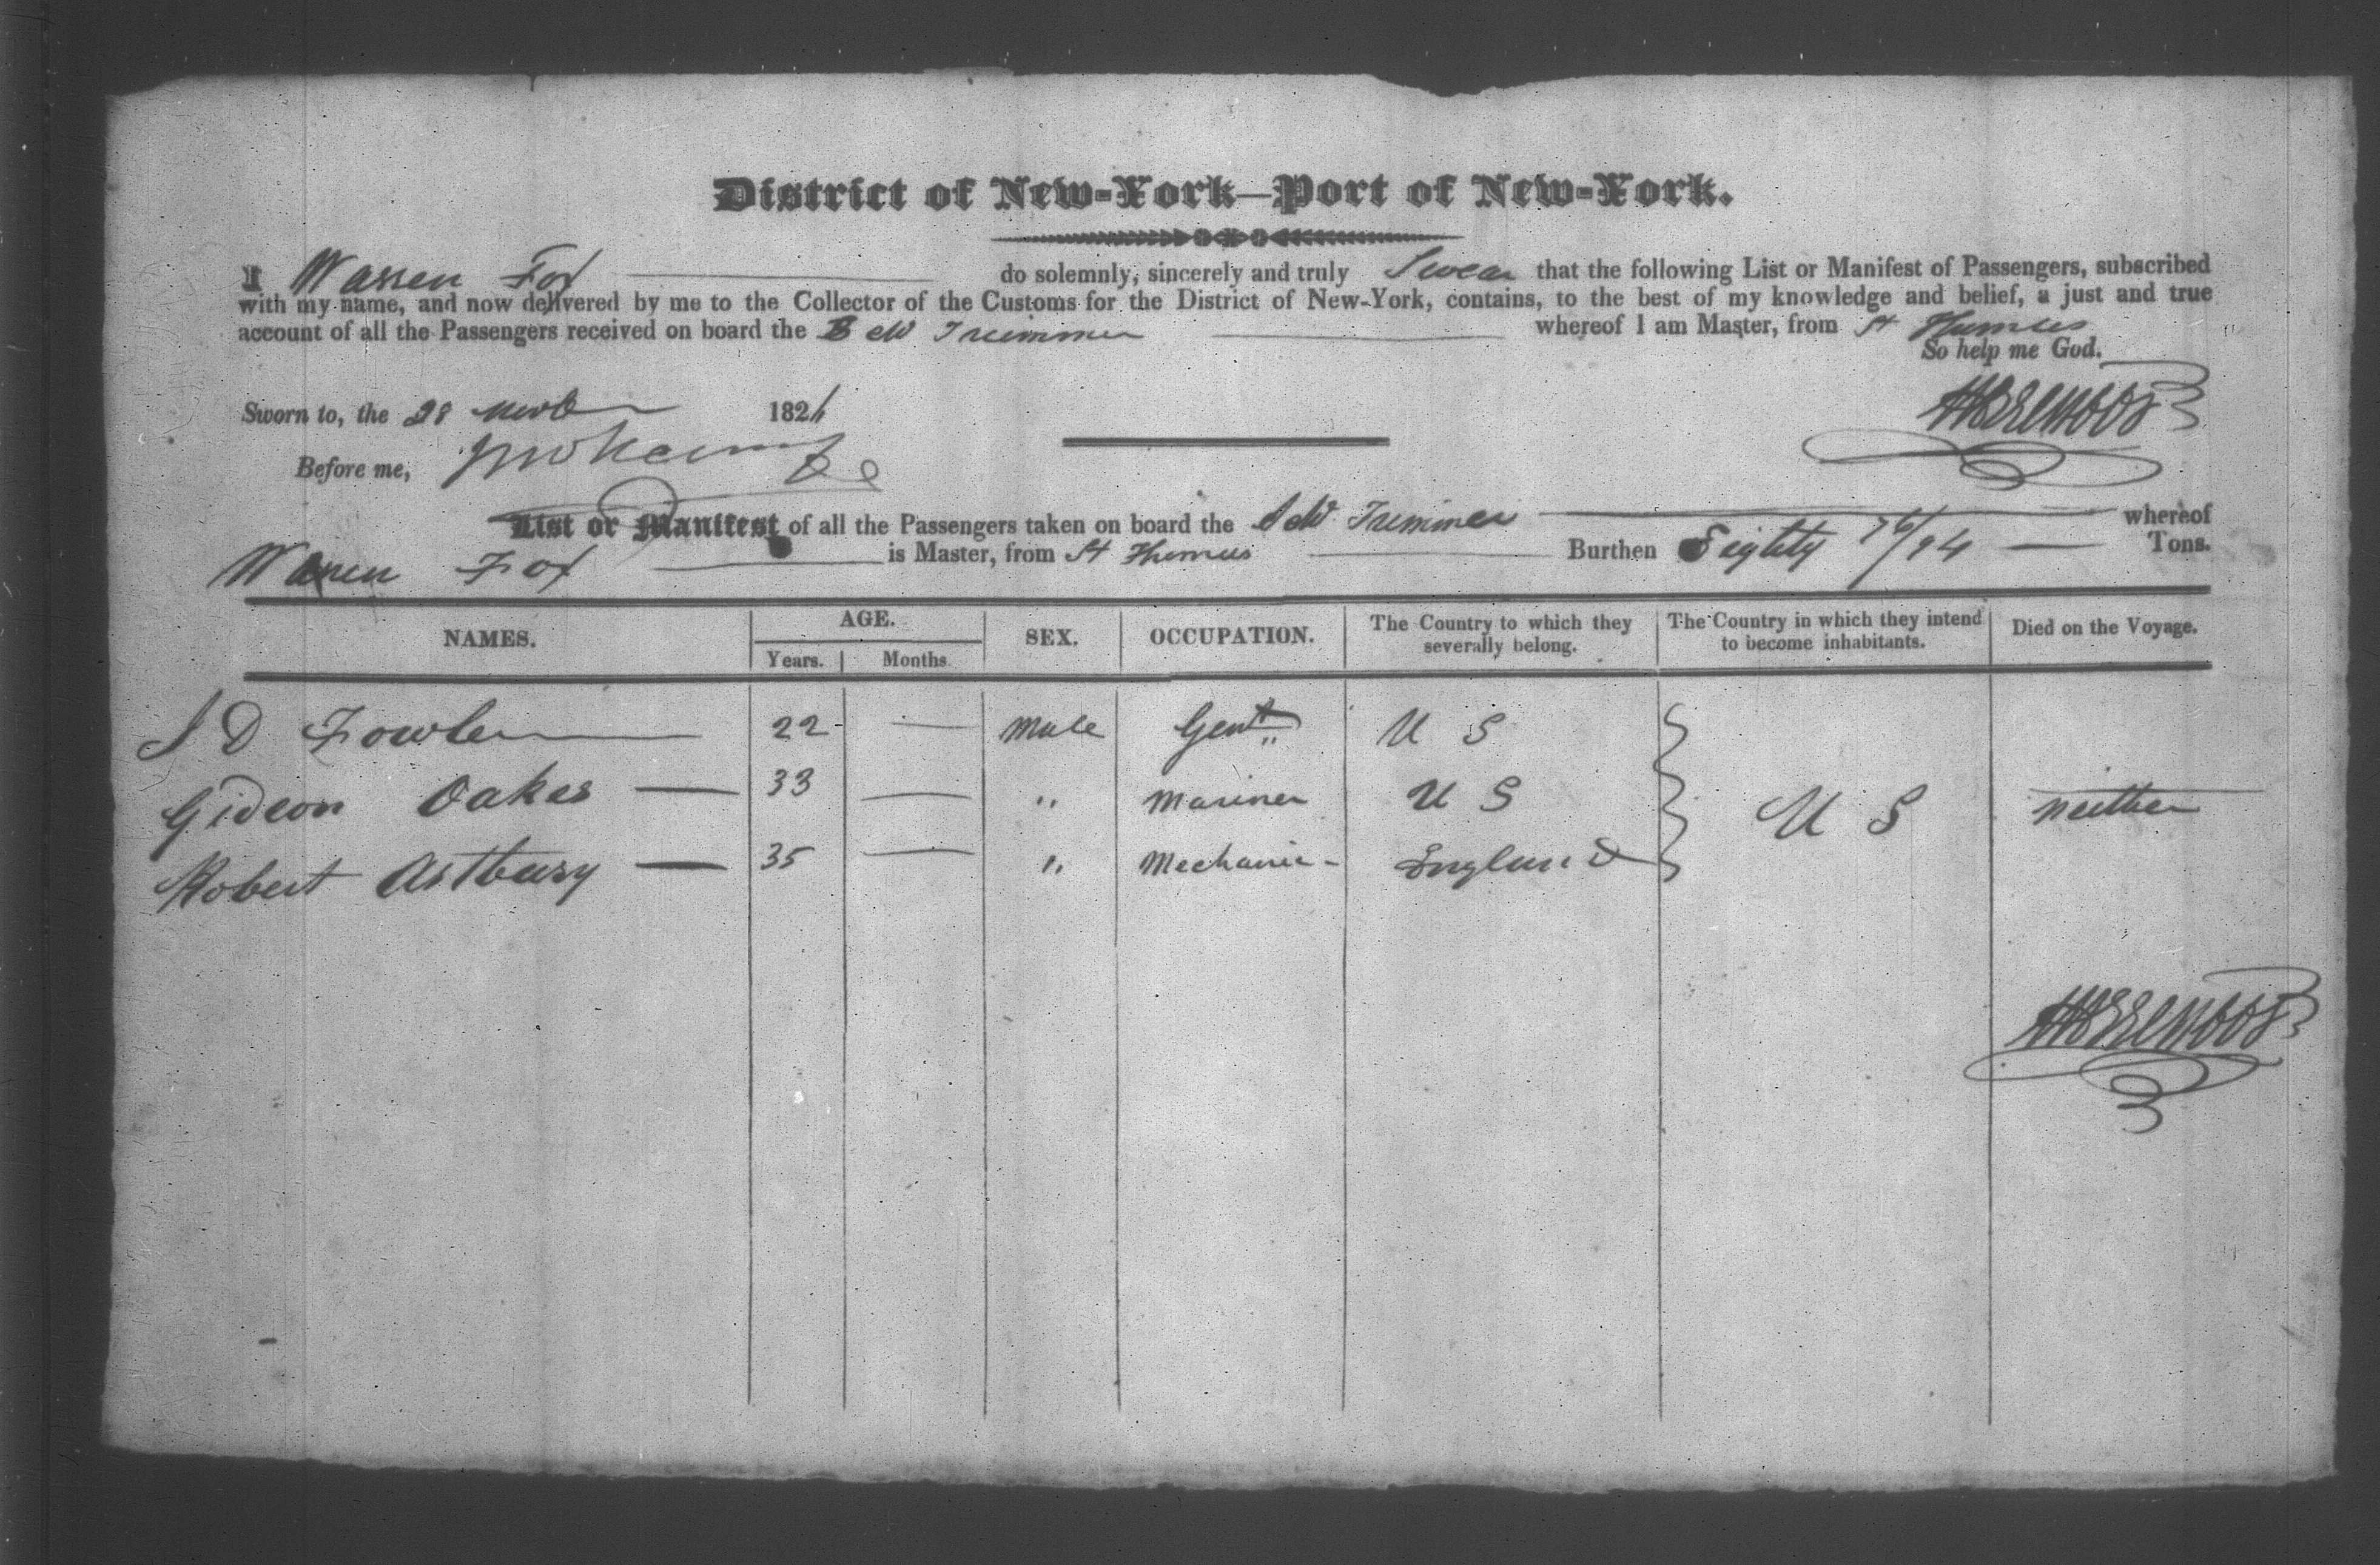 District of New-York—Port of New-York.
I Warren Fox do solemnly, sincerely and truly Swear that the following List or Manifest of Passengers, subscribed
with my name, and now delivered by me to the Collector of the Customs for the District of New-York, contains, to the best of my knowledge and belief, a just and true
account of all the Passengers received on board the Trimmer whereof I am Master, from St Thomas
So help me God.
Sworn to, the 28 1826
Before me,
List or Manifest of all the Passengers taken on board the Trimmer whereof
Warren Fox is Master, from St Thomas Burthen Eighty 76/94 Tons.
NAMES. AGE. SEX. OCCUPATION. The Country to which they severally belong. The Country in which they intend to become inhabitants. Died on the Voyage.
Years. Months
D Fowler 22 — Male Gent U S
Gideon Oakes — 33 — " Mariner U S U S neither
Robert Astbury — 35 — " Mechanic - England